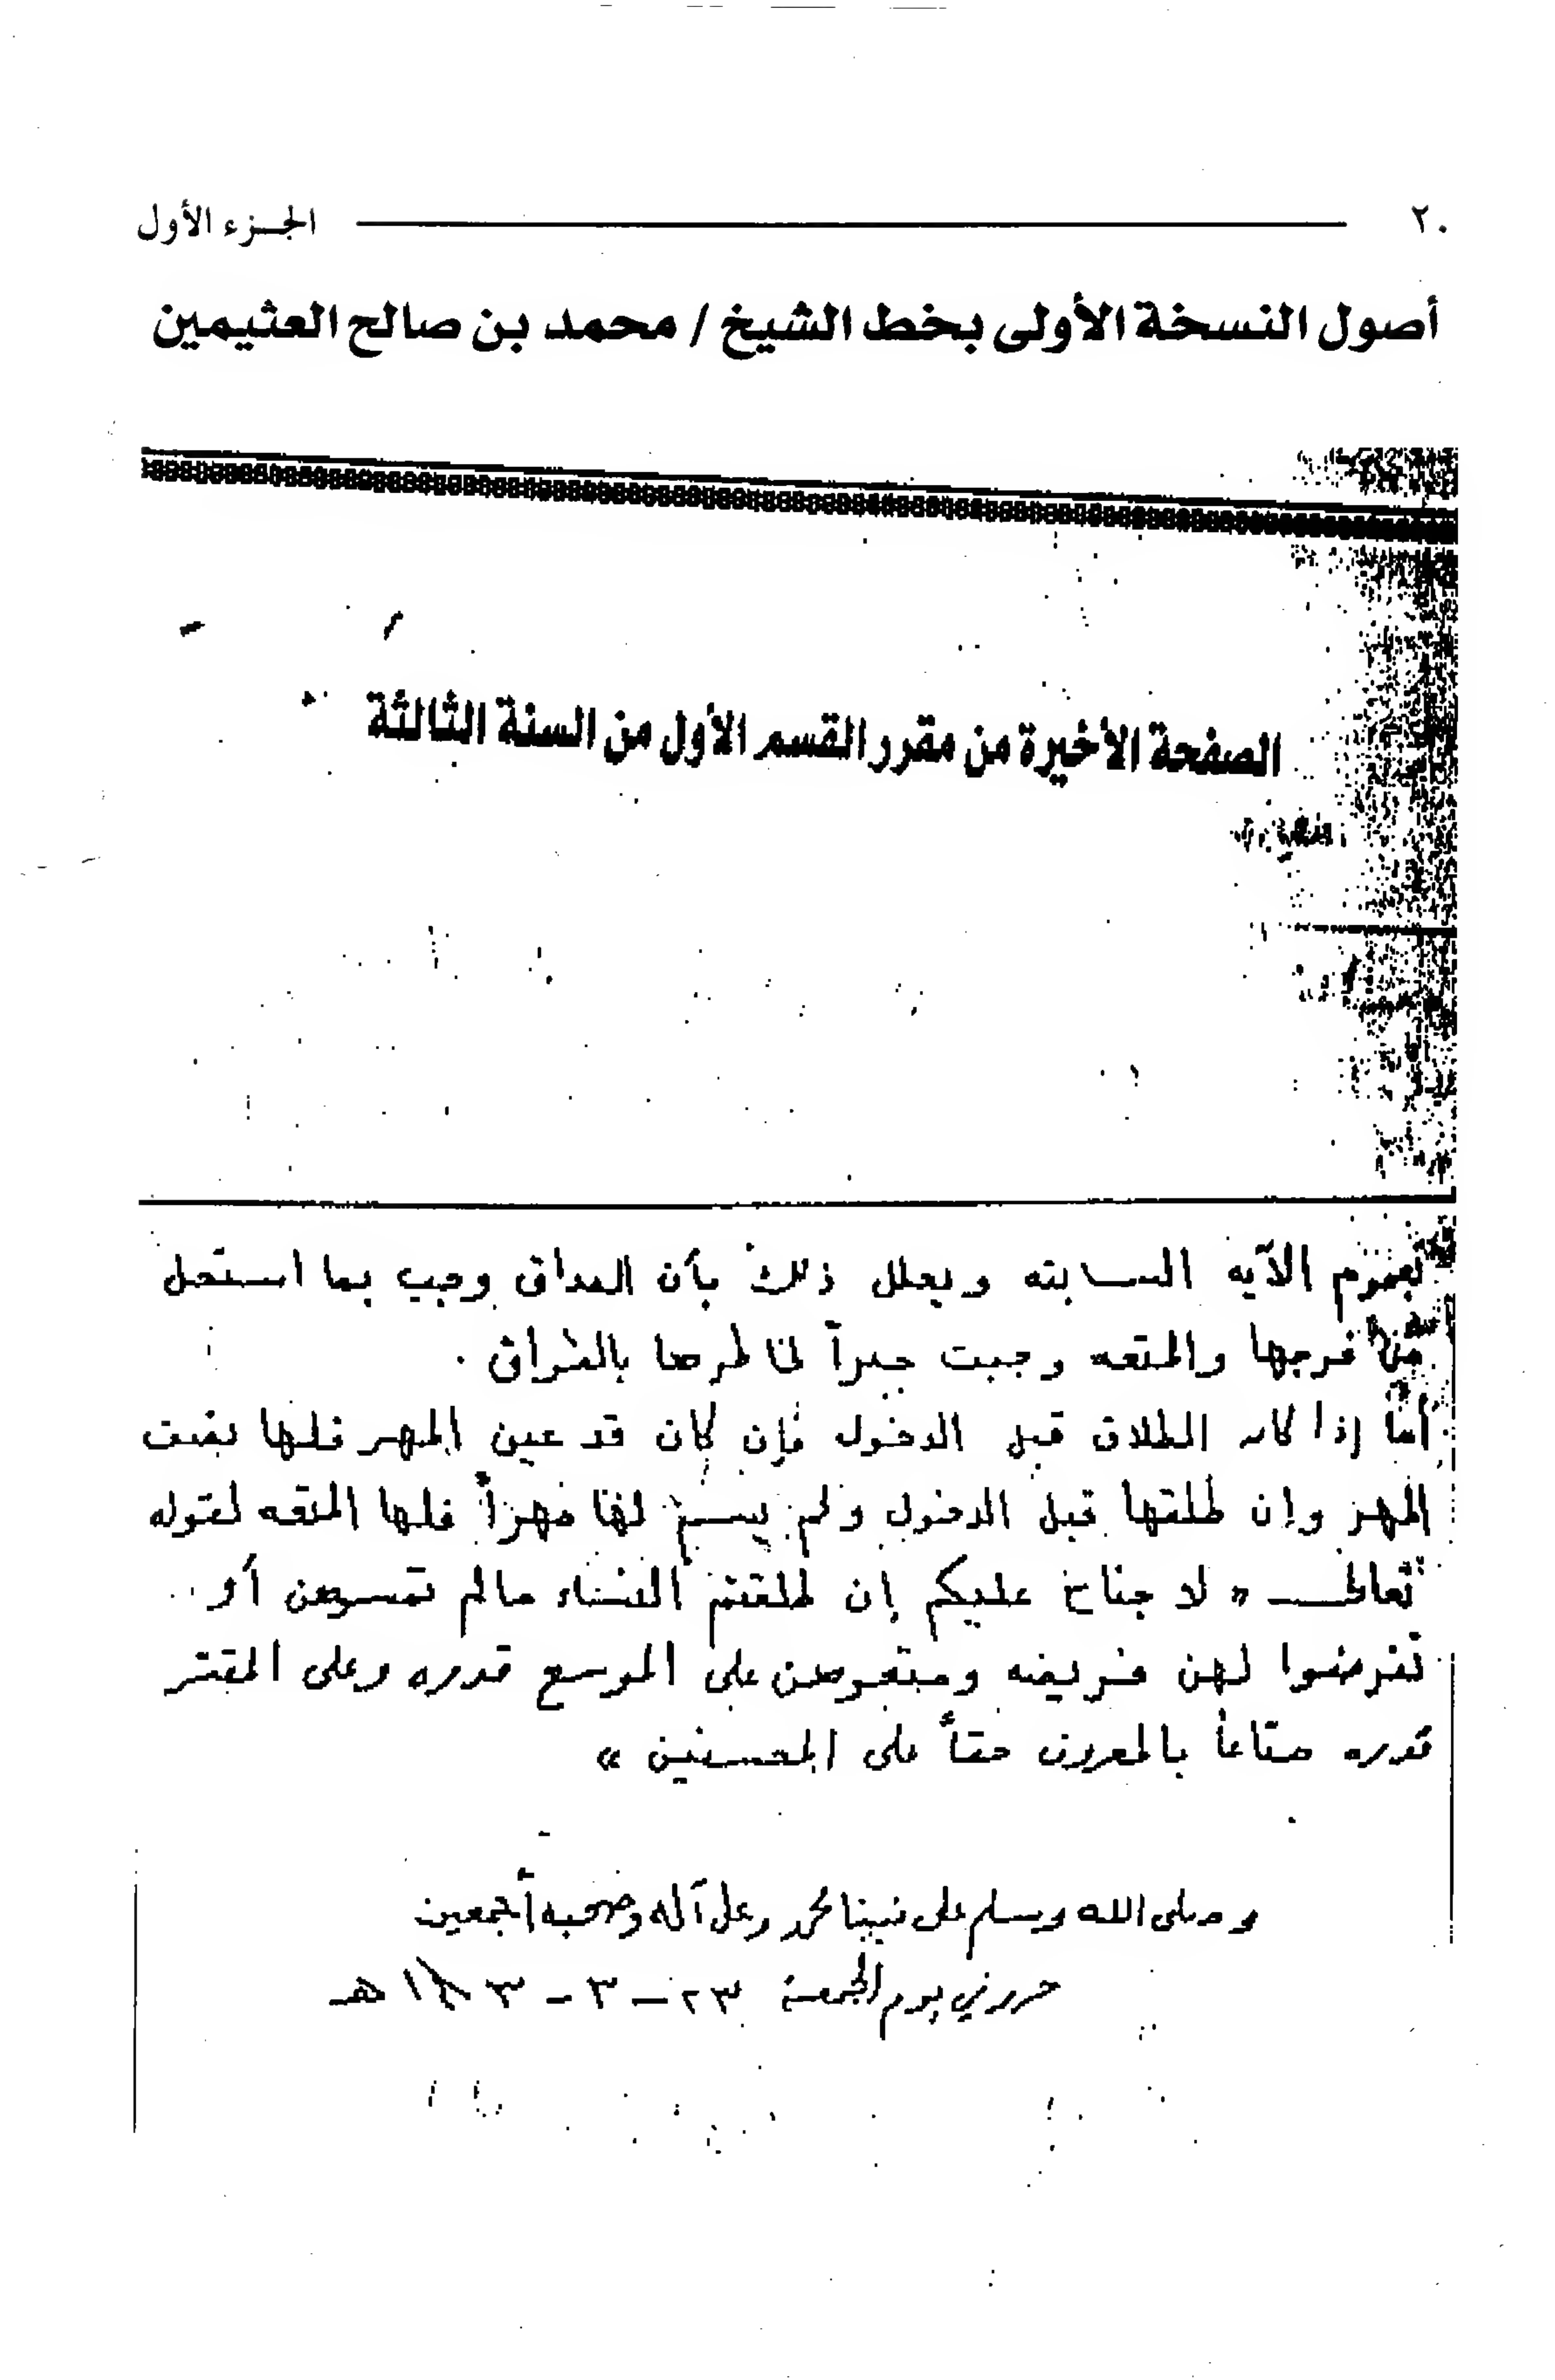 ٢٠ الجـزء الأول
أصول النسخة الأولى بخط الشيخ / محمد بن صالح العثيمين
الصفحة الأخيرة من مقرر القسم الأول من السنة الثالثة
بعموم الآيه السابقه ويعلل ذلك بأن الصداق وجب بما استحل
من فرجها والمتعه وجبت جبراً لخاطرها بالفراق .
أما إذا كان الطلاق قبل الدخول فإن كان قد عين المهر فلها نصف
المهر وإن طلقها قبل الدخول ولم يسم لها مهراً فلها المتعه لقوله
تعالى « لا جناح عليكم إن طلقتم النساء مالم تمسوهن أو
تفرضوا لهن فريضه ومتعوهن على الموسع قدره وعلى المقتر
قدره متاعاً بالمعروف حقاً على المحسنين »
وصلى الله وسلم على نبينا محمد وعلى آله وصحبه أجمعين
حرر في يوم الجمعة ٢٣ - ٣ - هـ